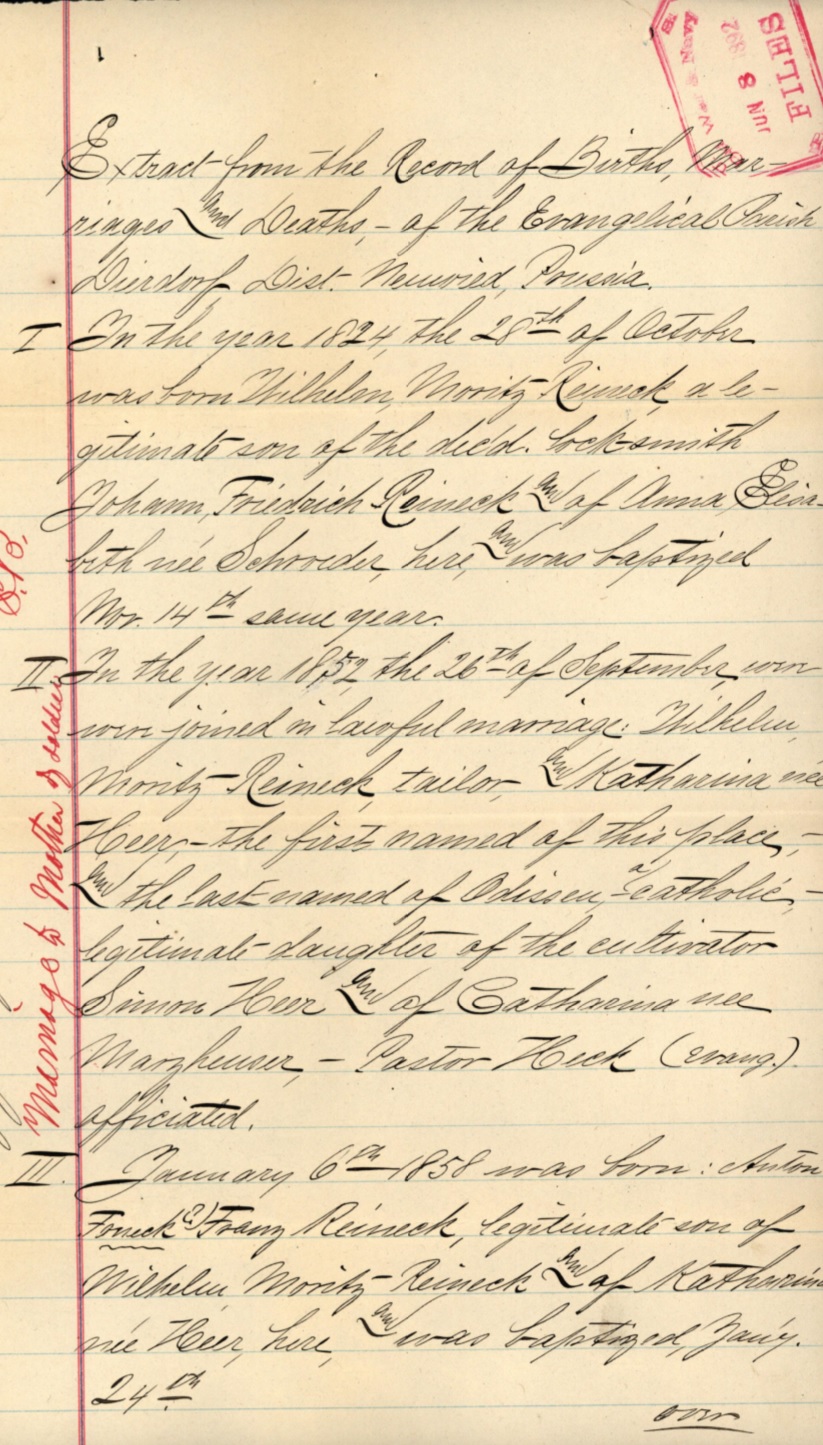 1
FILES
JUN 8 1892
Extract from the Record of Births, Mar-
riages and Deaths, - of the Evangelical Parish
Dierdorf, Dist. Neuwied, Prussia.
I In the year 1824, the 28th of October
was born Wilhelm, Moritz Reineck, a le-
gitimate son of the dec'd. locksmith
Johann, Friedrich Reineck and of Anna, Elisa-
beth née Schroeder, here, and was baptized
Nov. 14th same year.
II In the year 1852, the 26th of September, were
were joined in lawful marriage: Wilhelm,
Moritz Reineck, tailor, and Katharina née
Heer, - the first named of this place, -
and the last named of Odissen, - a catholic, -
legitimate daughter of the cultivator
Simon Heer and of Catharina nee
Marzheuser, - Pastor Heck (evang.)
officiated.
III. January 6th 1858 was born: Anton
Foneck(?) Franz Reineck, legitimate son of
Wilhelm Moritz Reineck and of Katharina
née Heer, here, and was baptized, Jany.
24th.
over
Marriage to Mother of soldier